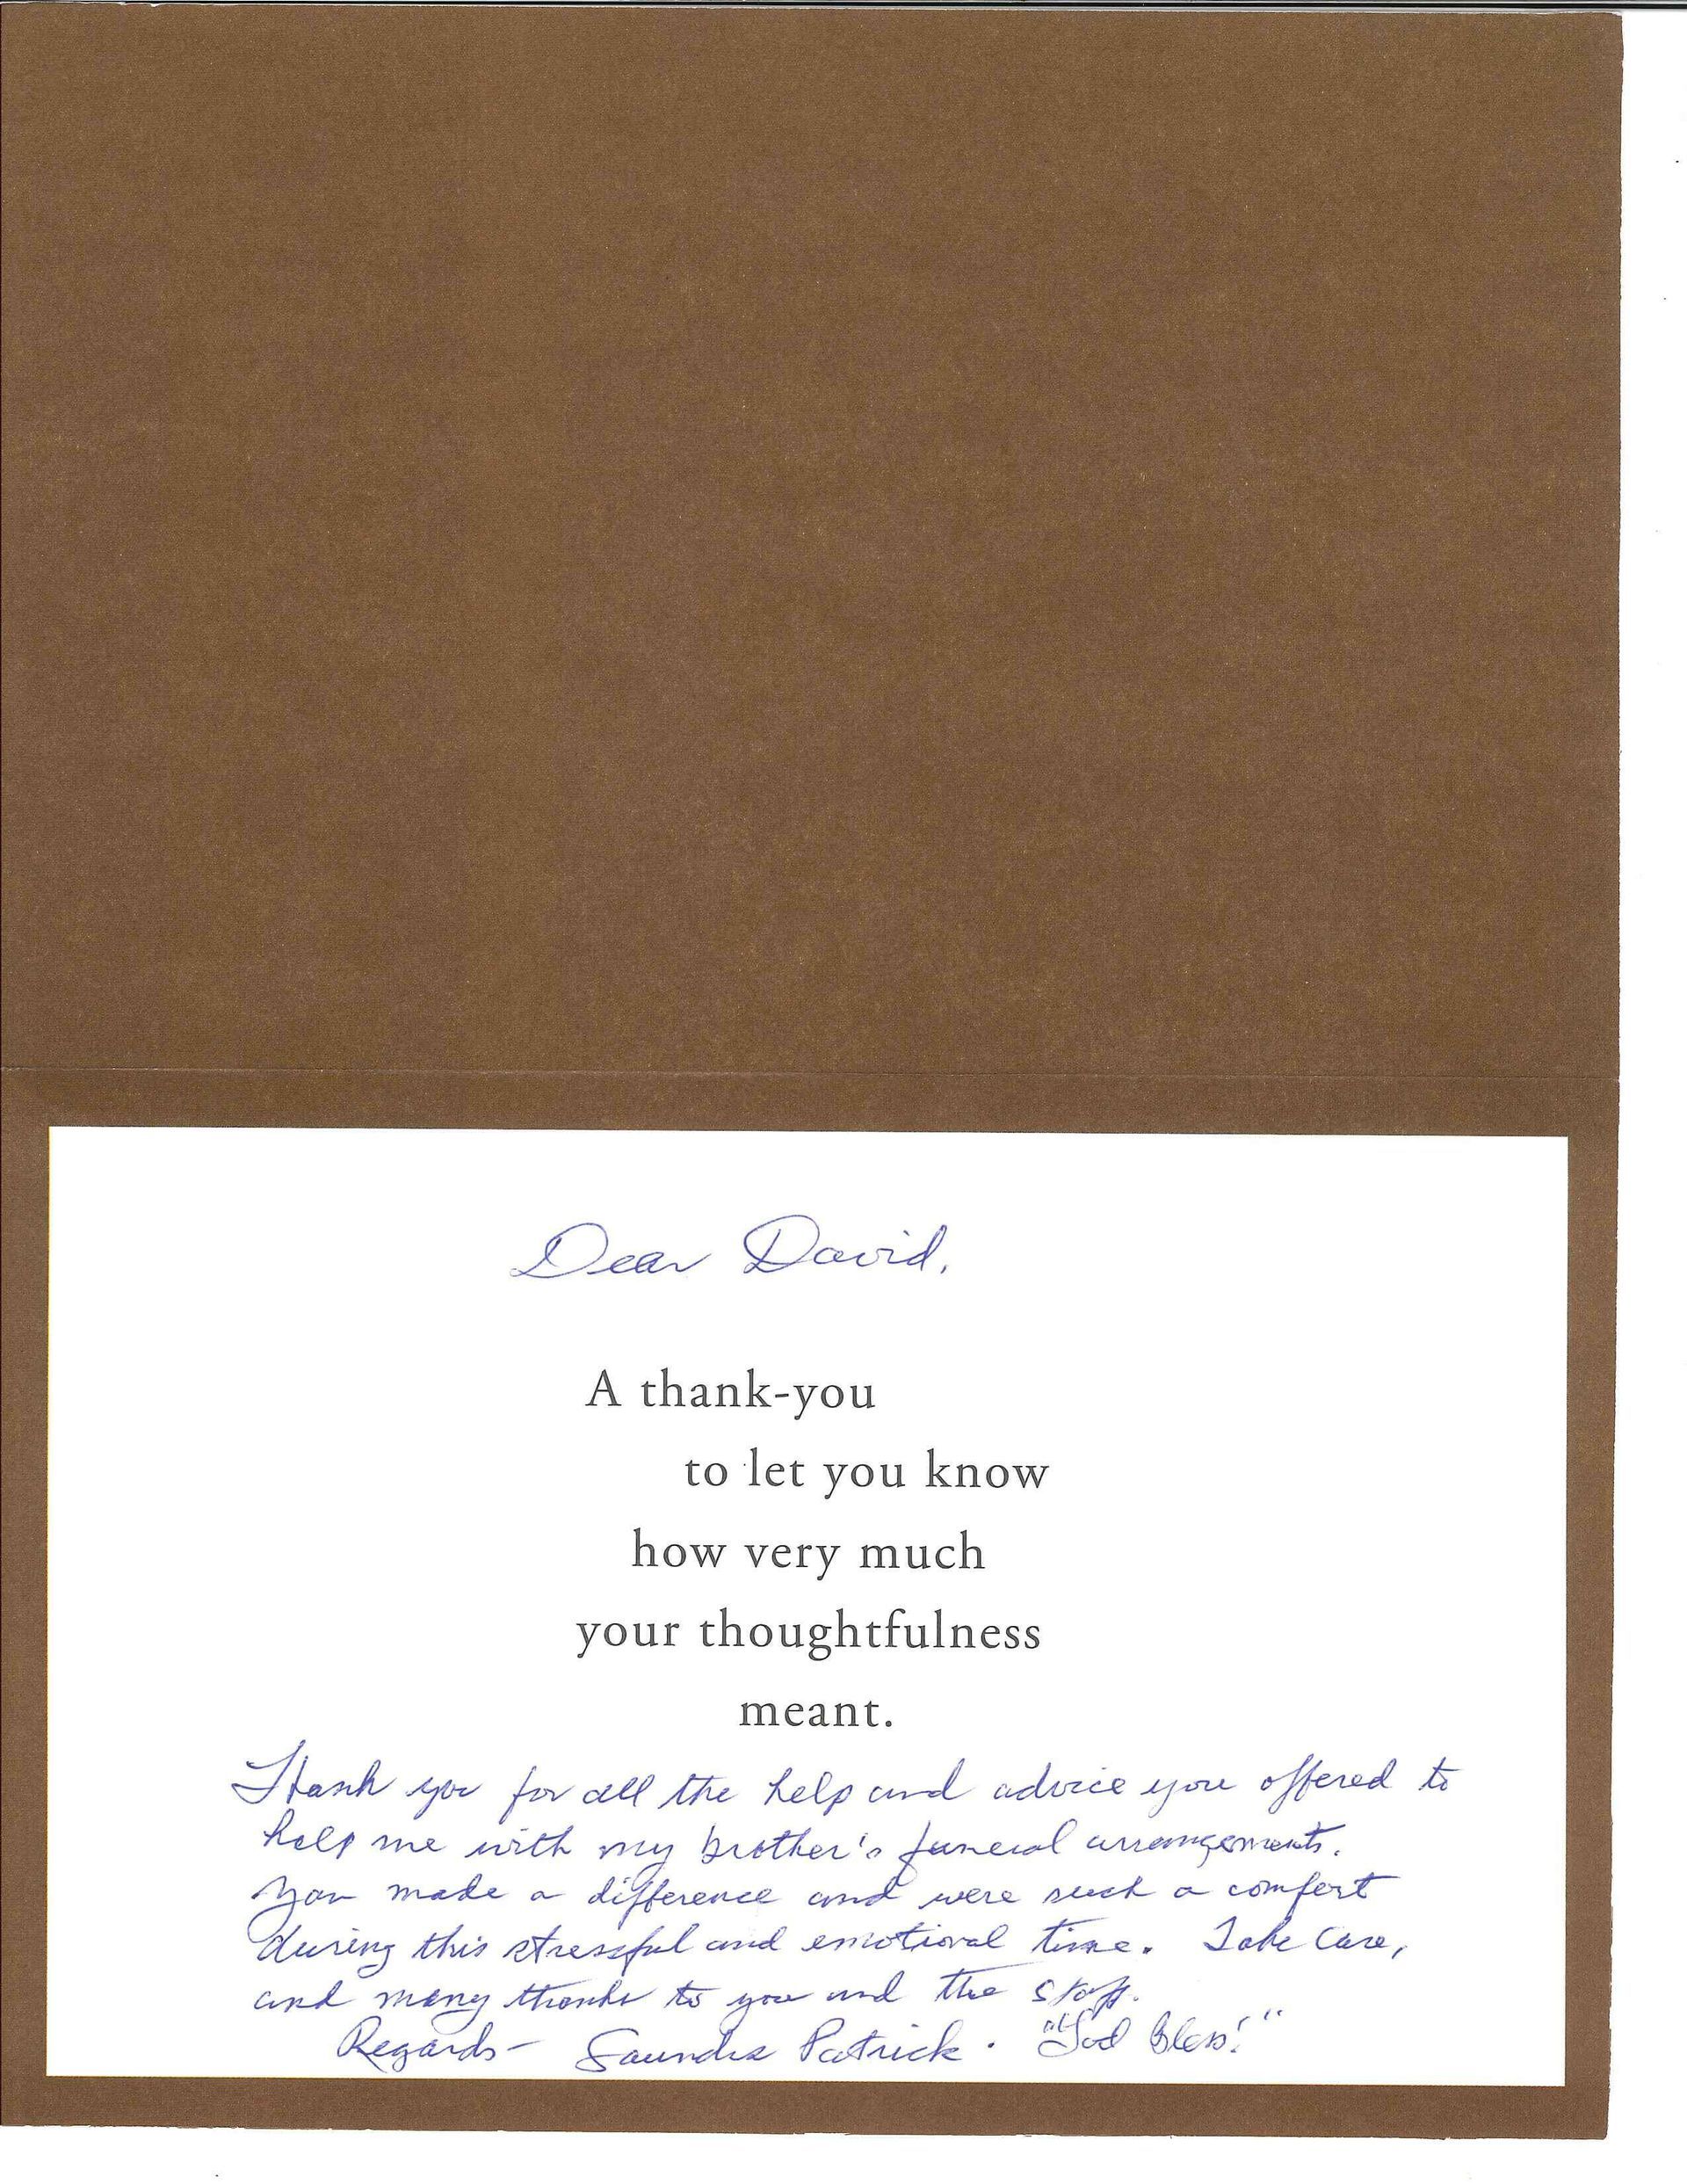 Dear David,
A thank-you
to let you know
how very much
your thoughtfulness
meant.
Thank you for all the help and advice you offered to
help me with my brother's funeral arrangements.
You made a difference and were such a comfort
during this stressful and emotional time. Take Care,
and many thanks to you and the staff.
Regards- Patrick. "God Bless!"